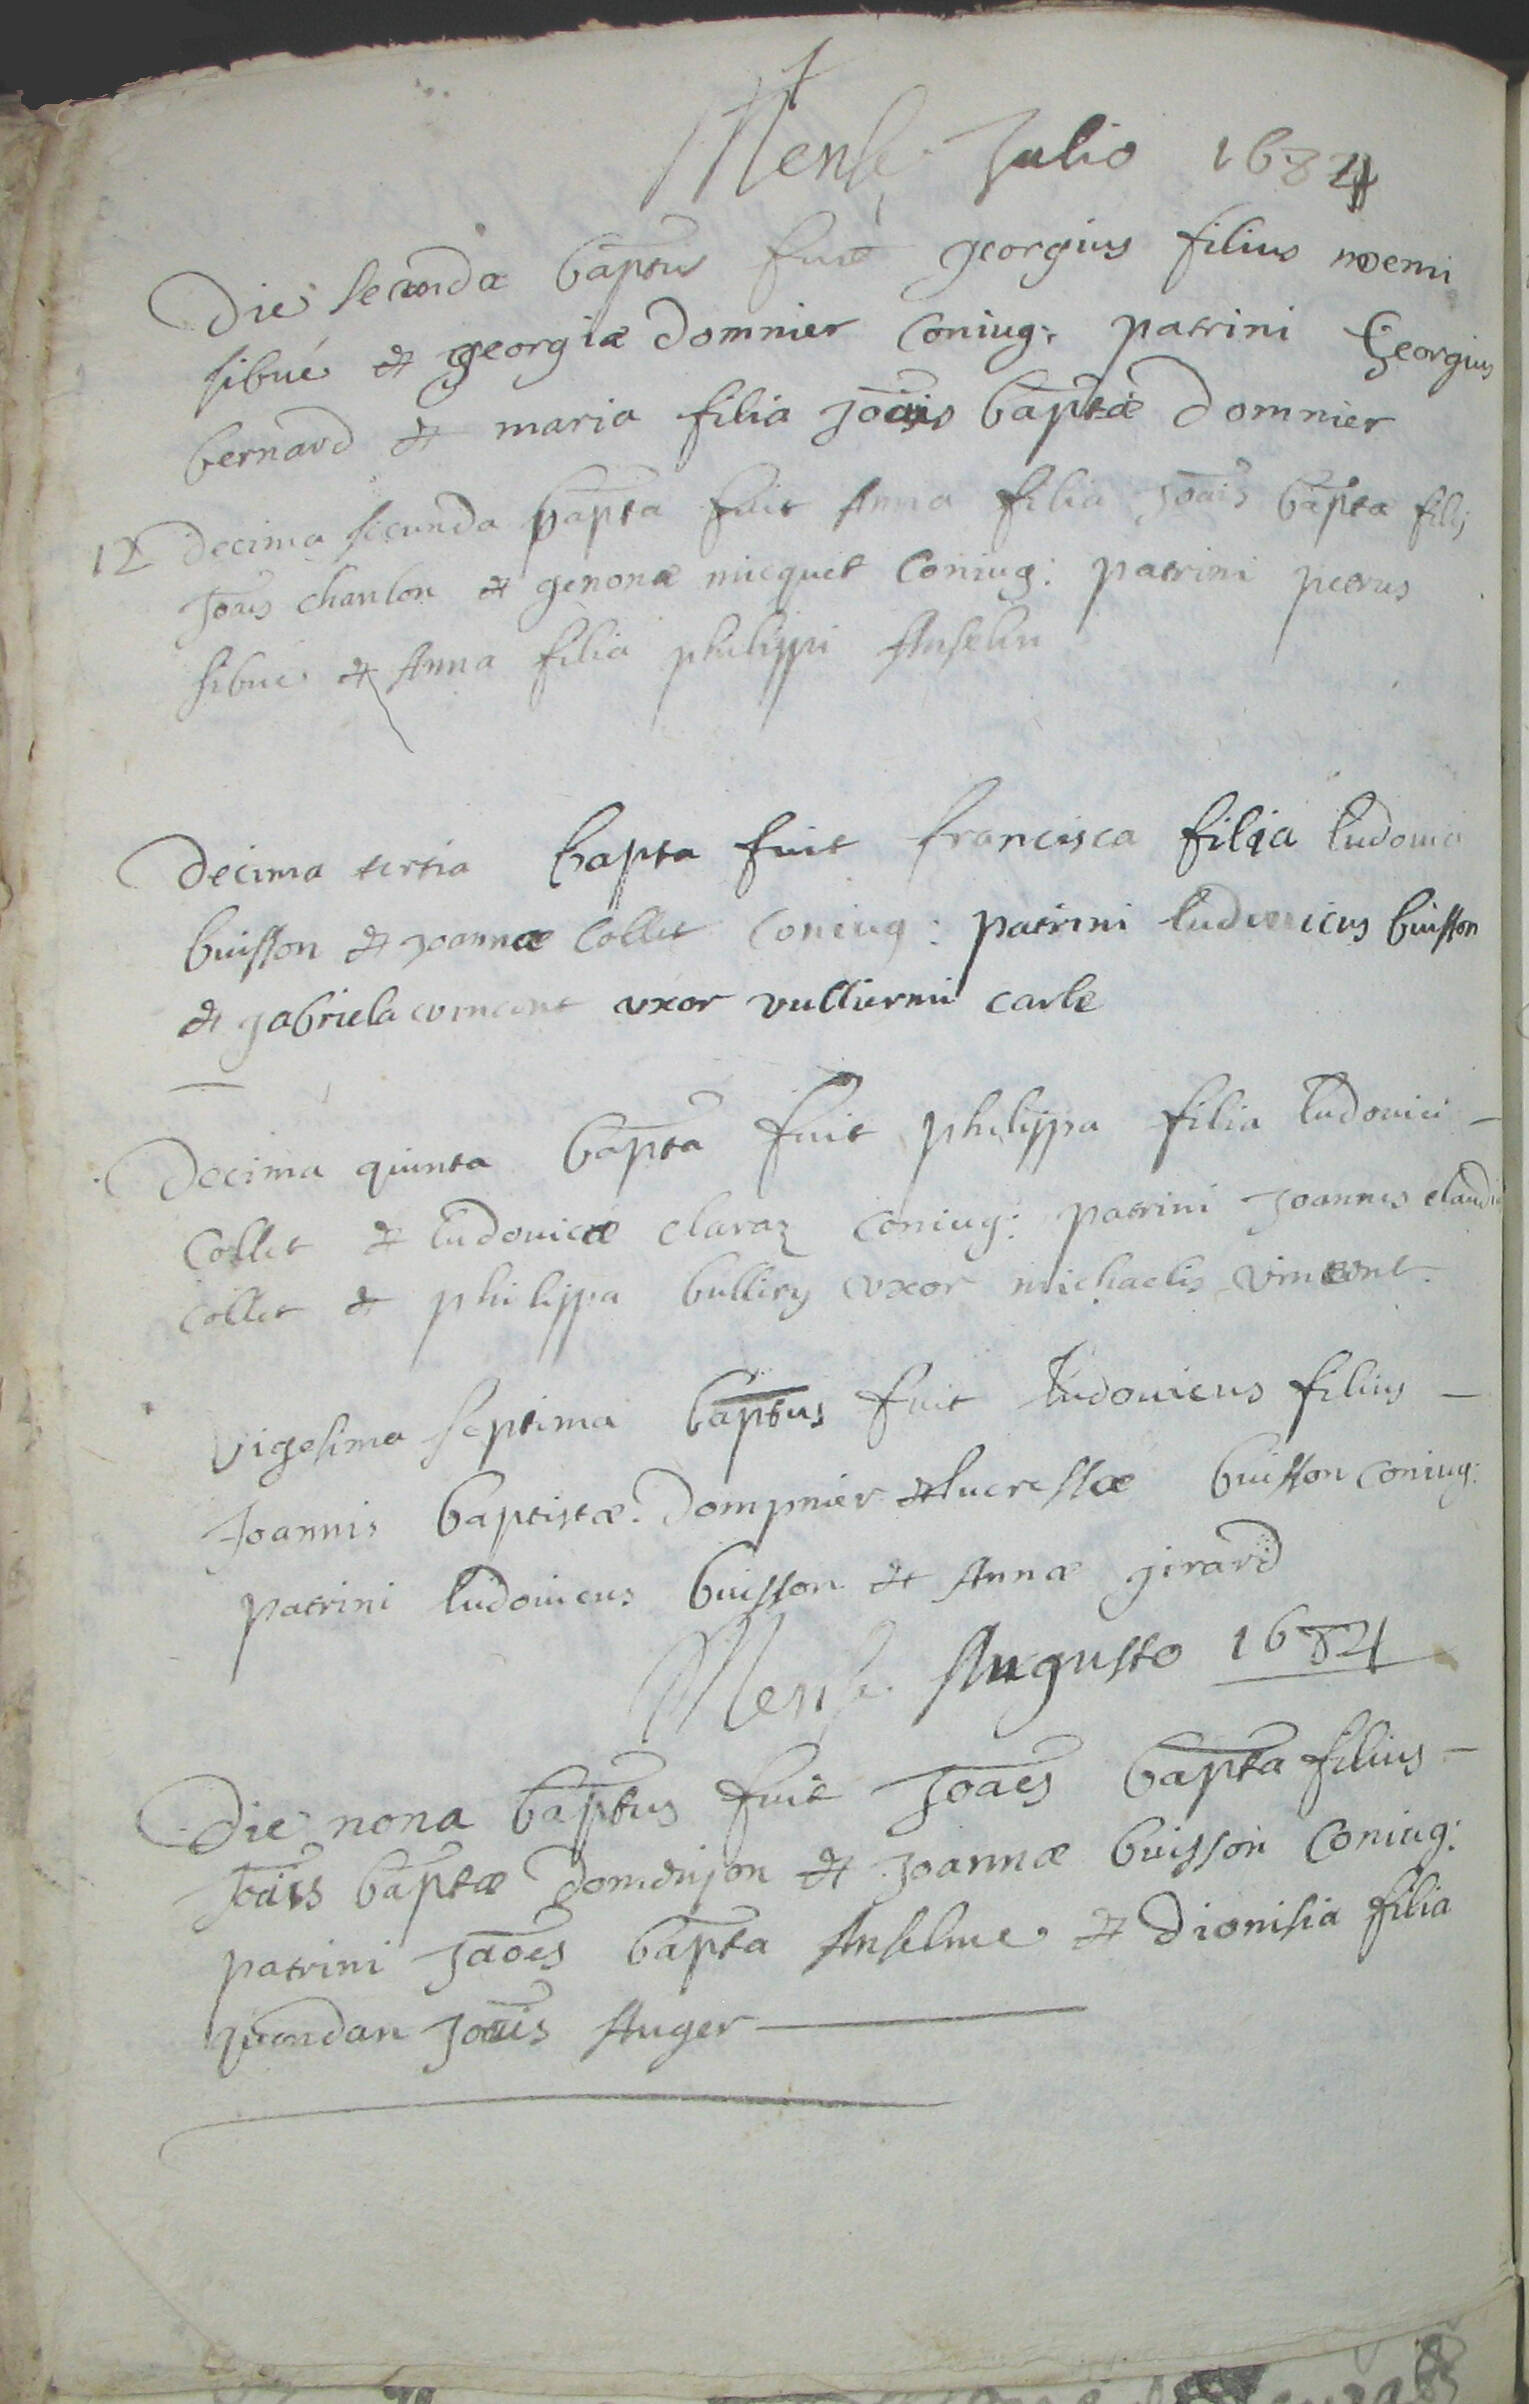 Mense Julio 1684
Die secunda bap̄tus fuit georgius filius noemi
sibué et georgiæ Domnier coniug: patrini Georgius
bernard et maria filia Joāis bap̄tæ Domnier
12 Decima secunda bap̄ta fuit Anna filia Joāis bap̄tæ filij
Joāis chanlon et genonæ micquet coniug: patrini petrus
sibue et Anna filia philippi Anselin
Decima tertia bapta fuit francisca filia ludovici
buisson et Joannæ Collet coniug: patrini ludovicus buisson
et gabriela uxor vulliermi carle
Decima quinta bap̄ta fuit philippa filia ludovici -
Collet et ludovicæ claraz coniug: patrini Joannes claudius
Collet et philippa bulliry uxor michaelis vincent.
vigesima septima bap̄tus fuit ludovicus filius -
Joannis baptistæ Dompnier et lucressæ buisson coniug:
patrini ludovicus buisson et Annæ girard
Mense Augusto 1684
Die nona bap̄tus fuit Joāes bap̄ta filius -
Joāis bap̄tæ domenjon et Joannæ buisson coniug:
patrini Jāoes bap̄ta Anselme et Dionisia filia
quondan Joāis Auger